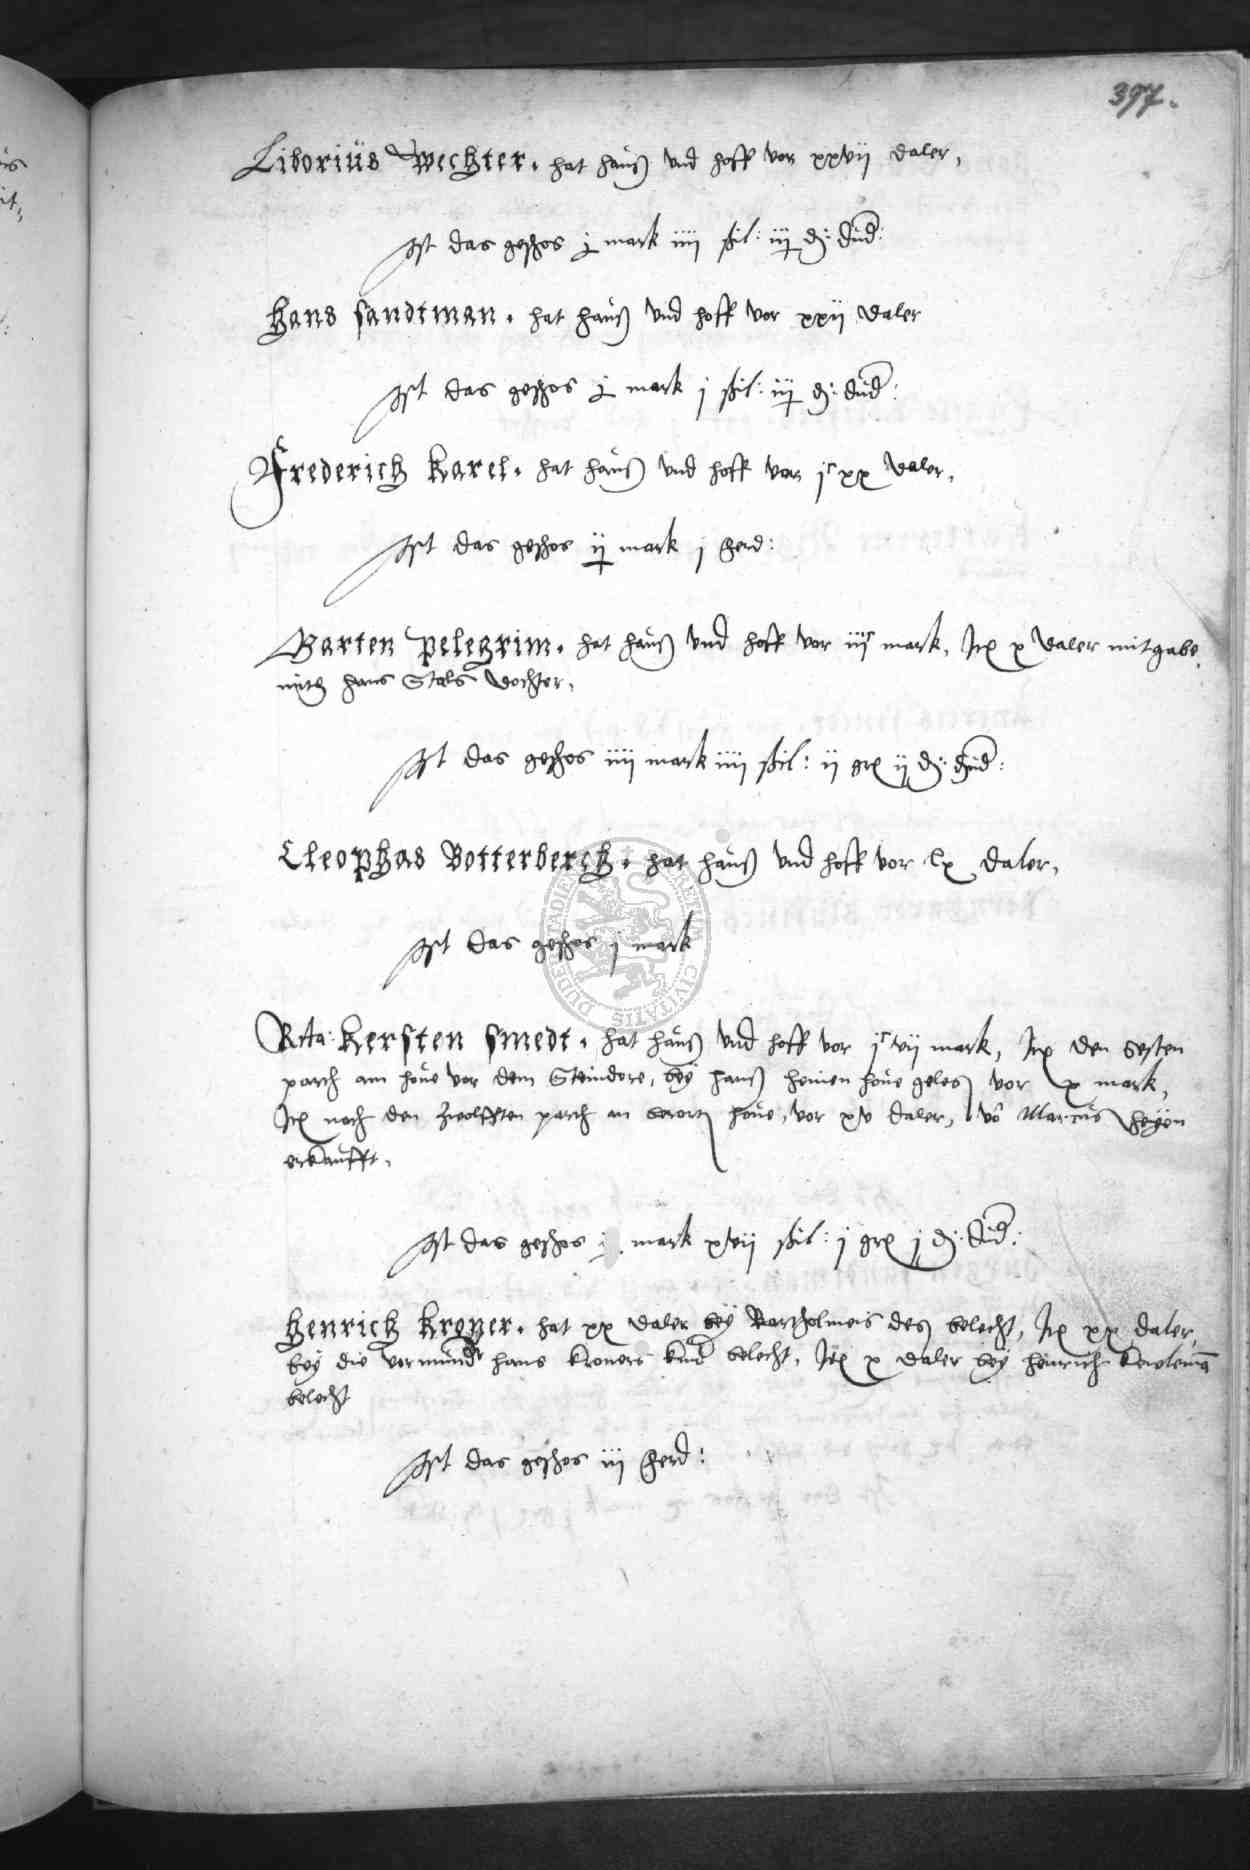 397.
Liborius Wechter. hat hauß vnd hoff vor xxvij daler,
Ist das geschos j mark iiij ßil: iij d: dud:
Hans Sandtman. hat hauß vnd hoff vor xxij daler
Ist das geschos j mark j ßil: iij d: dud:
Frederich Karel. hat hauß vnd hoff vor jc xx daler,
Ist das geschos ij mark j ferd:
Barten Pelegrim. hat hauß vnd hoff vor iiijc mark, Itē x daler mitgabe
mith Hans Stals dochter,
Ist das geschos iiij mark iiij ßil: ij grē ij d: dud:
Cleophas Botterberch. hat hauß vnd hoff vor lx daler,
Ist das geschos j mark
Rta: Kersten Smedt. hat hauß vnd hoff vor jc vij mark, Itē den sesten
parch am houe vor dem Steindore, bey Hanß Heinen houe geleg vor x mark,
Itē noch den zwolfften parch an houe, vor xv daler, vō Marcus Heyen
erkaufft,
Ist das geschos mark xvij ßil: j grē j d: dud:
Henrich Kroner. hat xx daler bey Bartholmeis des belecht, Itē xx daler,
bey die vormunder Hans Kroners kind belecht, Itē x daler bey Heinrich
belecht
Ist das geschos iij ferd:
DUDERSTADIENSIS CIVITATIS